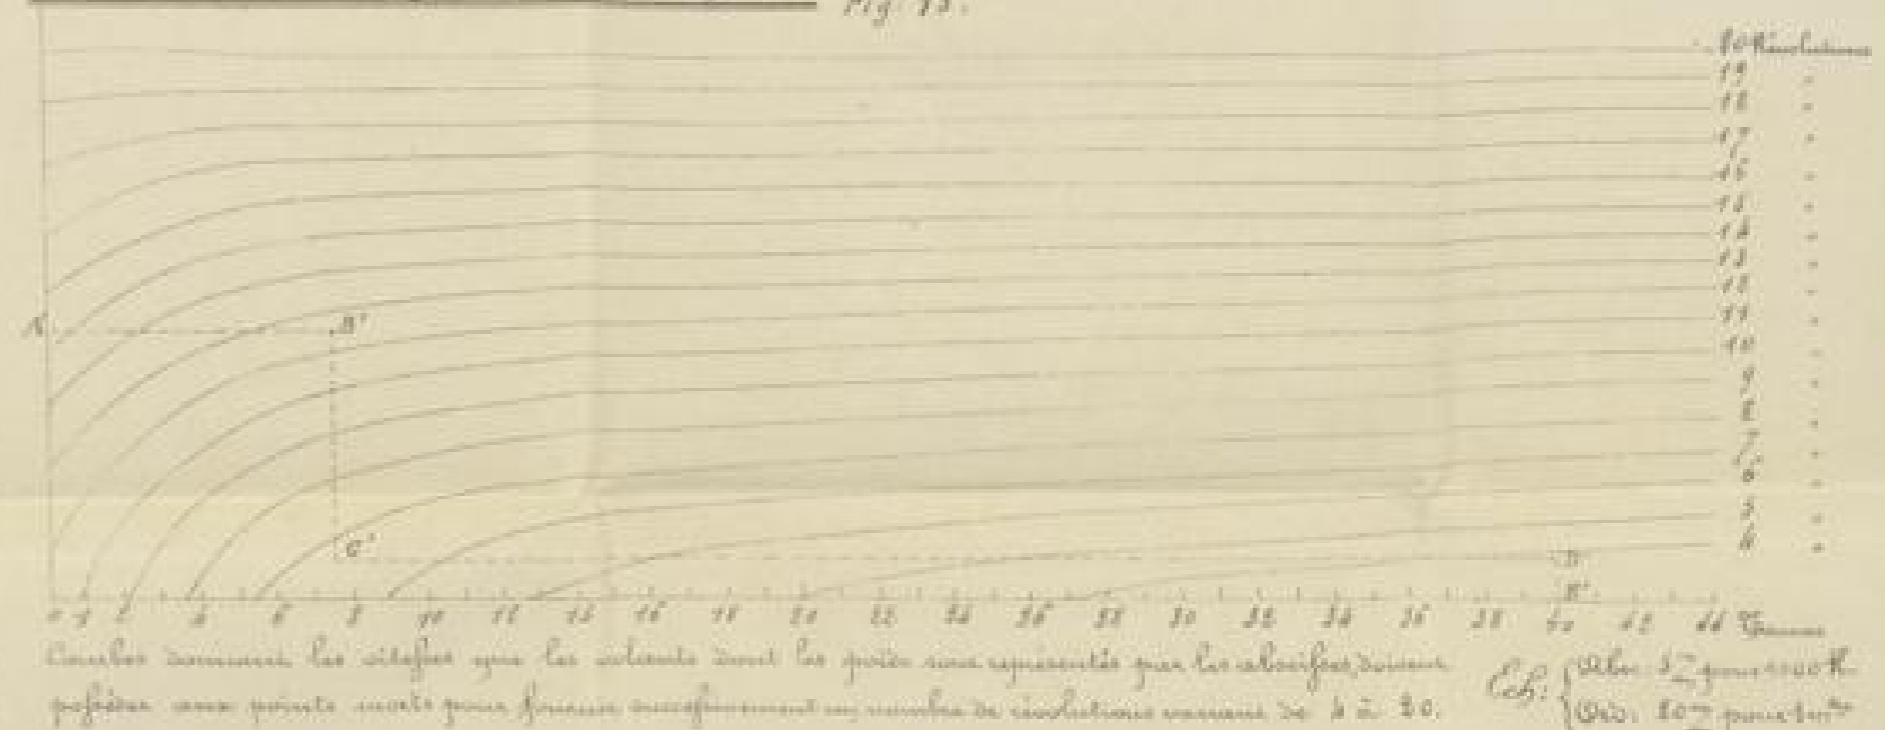 Fig. 13.
20 Révolutions
19 "
18 "
17 "
16 "
15 "
14 "
13 "
12 "
11 "
10 "
9 "
8 "
7 "
6 "
5 "
4 "
B'
C'
D
0 1 2 4 6 8 10 12 14 16 18 20 22 24 26 28 30 32 34 36 38 40 42 44 Tonnes
Courbes donnant les vitesses que les volants dont les poids sont représentés par les abscisses, doivent
posséder aux points morts pour fournir successivement un nombre de révolutions variant de 4 à 20.
Ech:
Abs: 5 m/m pour 1000 K.
Ord: 20 m/m pour 1 m